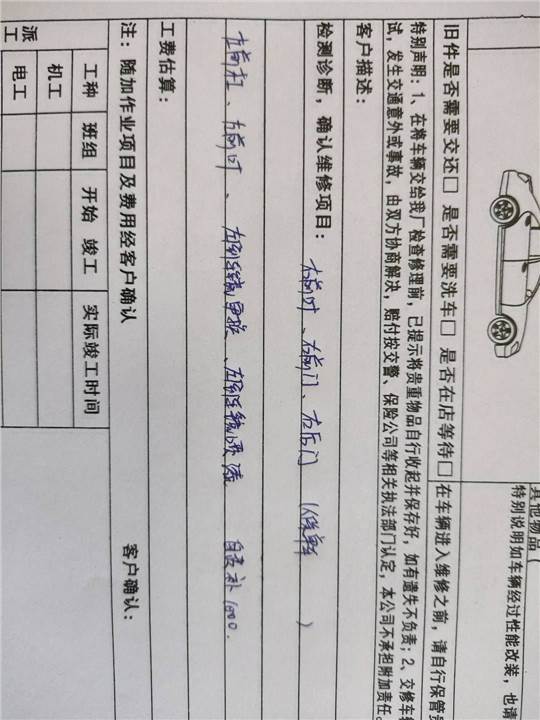 其他物品（
特别说明如车辆经过性能改装，也请
旧件是否需要交还□ 是否需要洗车□ 是否在店等待□ 在车辆进入维修之前，请自行保管
特别声明：1、在将车辆交给我厂检查修理前，已提示将贵重物品自行收起并保存好，如有遗失不负责；2、交修车辆
试，发生交通意外或事故，由双方协商解决，赔付按交警、保险公司等相关执法部门认定，本公司不承担附加责任。
客户描述：
检测诊断，确认维修项目：
右前叶、右前门、右后门
左前杠、左前叶、左 自费补1000.
工费估算：
注：随加作业项目及费用经客户确认 客户确认：
派工 工种 班组 开始 竣工 实际竣工时间
机工
电工